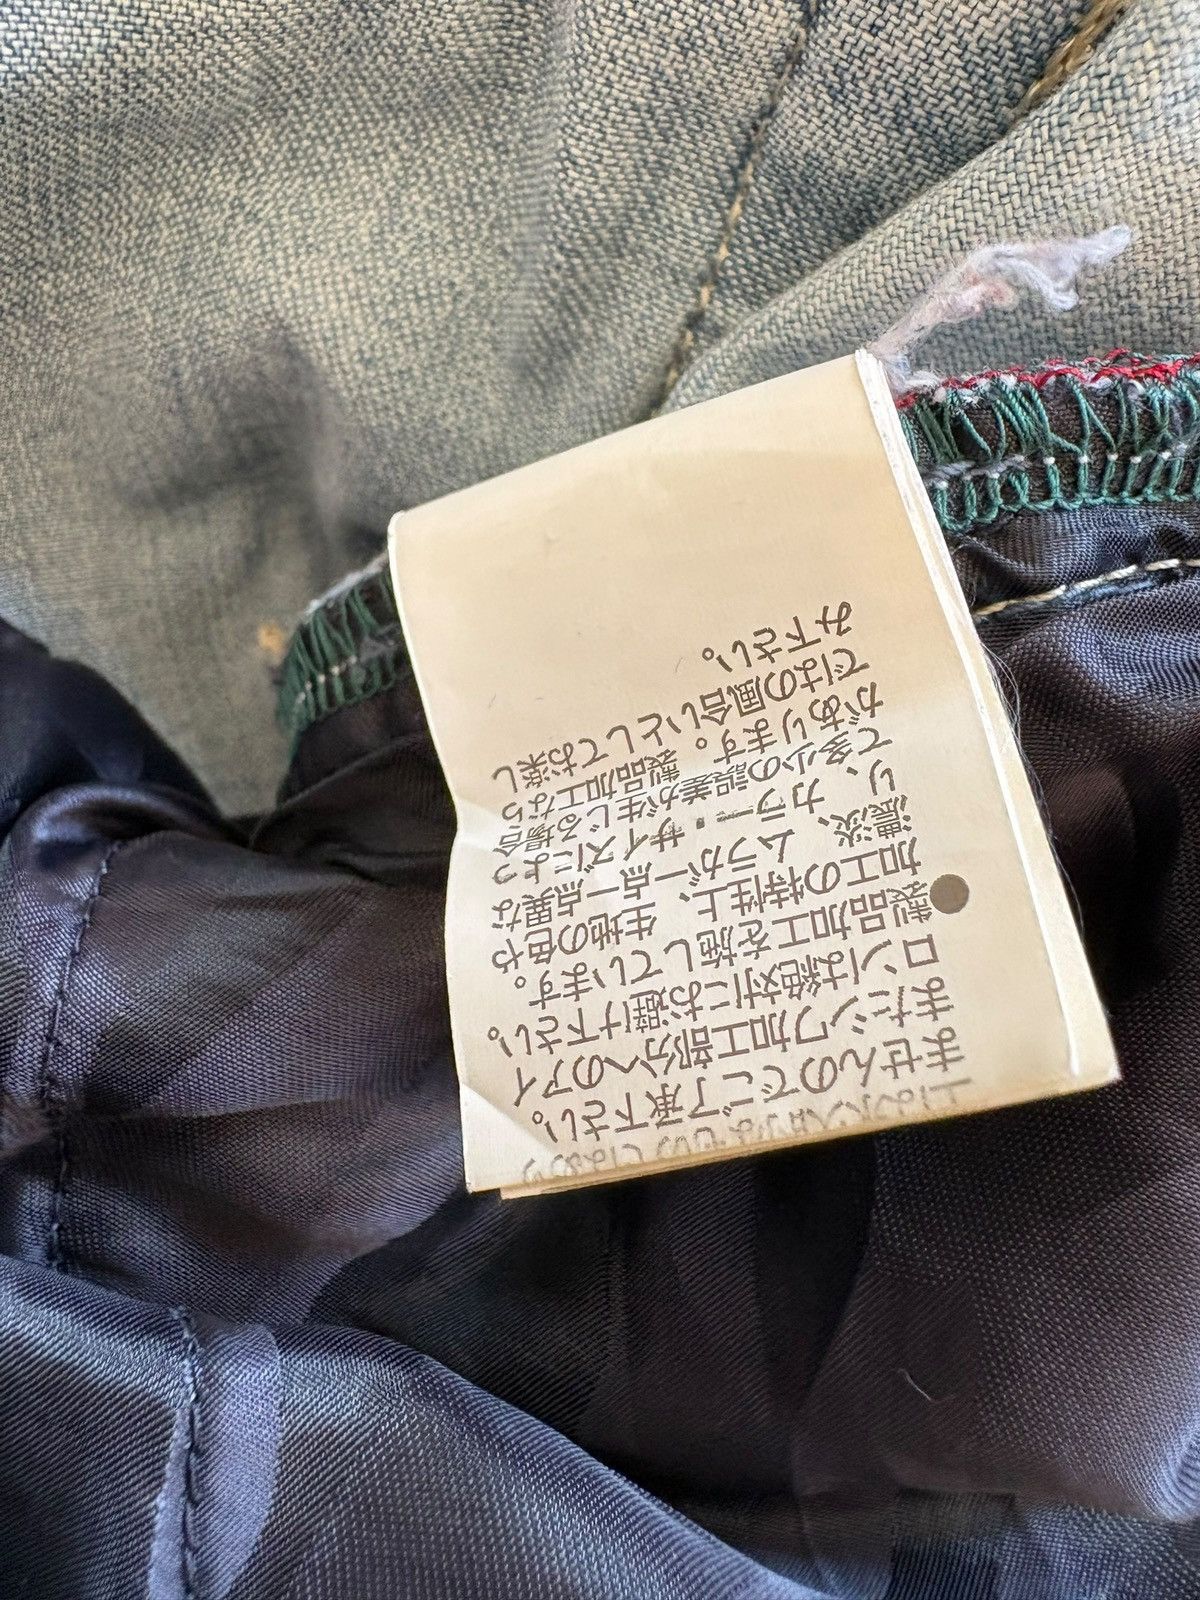 ませんのでご了承下さい。
またシワ加工部分へのアイ
ロンは絶対にお避け下さい。
●製品加工を施しています。
加工の特性上、生地の色や
濃淡、ムラが一点一点異な
り、カラー・サイズによっ
て多少の誤差が生じる場合
があります。製品加工なら
ではの風合いとしてお楽し
み下さい。